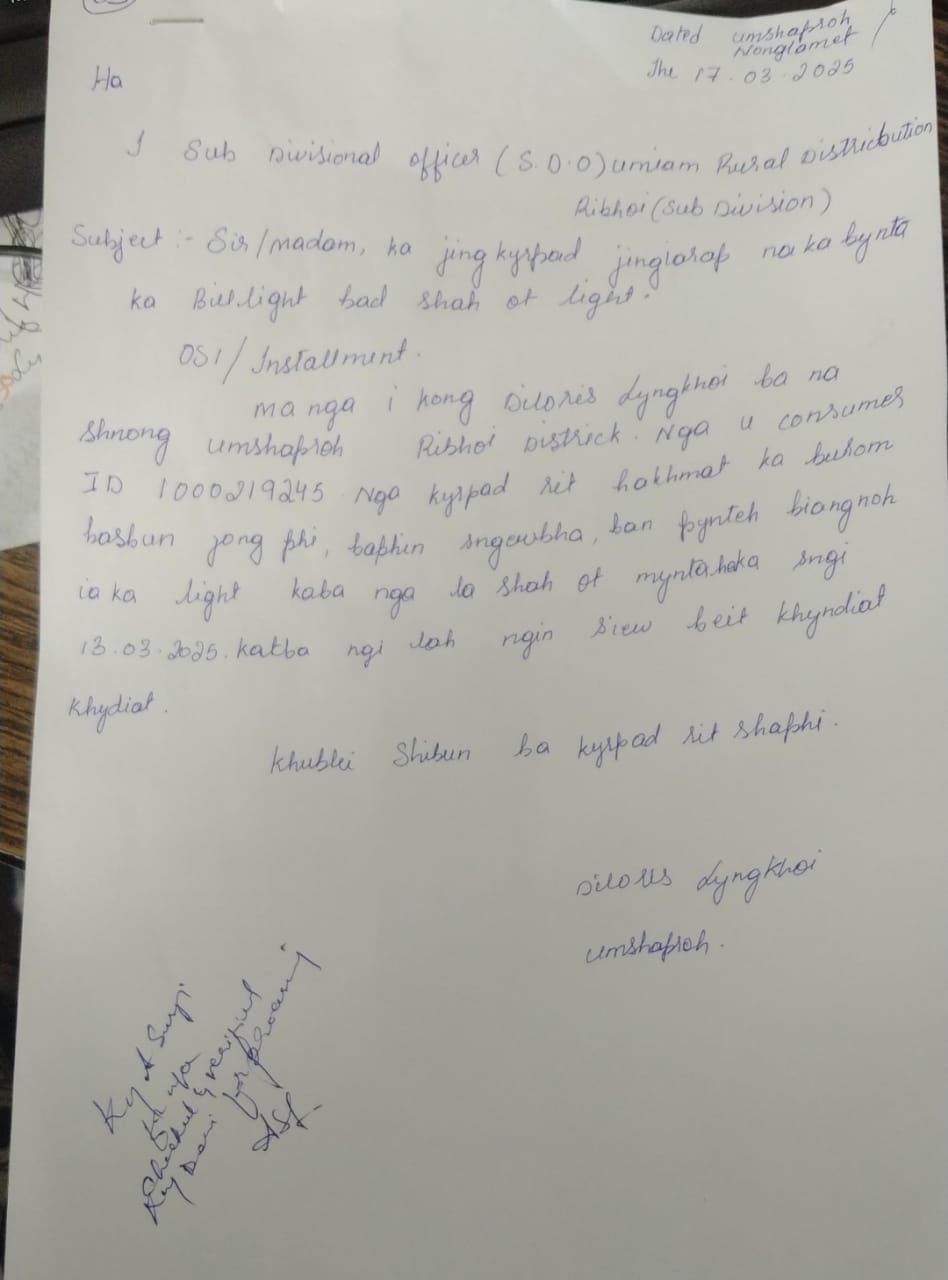 Dated umshaproh
Nonglamet
The 17.03.2025
Ha
I Sub Divisional officer (S.D.O) umiam Rural Districbution
Ribhoi (Sub Division)
Subject :- Sir/madam, ka jing kyrpad jingiarap na ka bynta
ka Bill light bad shah ot light.
OSI/Installment.
ma nga i kong Diloris Lyngkhoi ba na
Shnong umshaproh Ribhoi District. Nga u consumer
ID 1000219245 Nga kyrpad rit hakhmat ka burom
basbun jong phi, baphin sngewbha, ban pynteh biangnoh
ia ka light kaba nga la shah ot myntahoka sngi
13.03.2025. katba ngi lah ngin siew beit khyndiat
Khydiat.
Khublei Shibun ba kyrpad rit shaphi.
Diloris Lyngkhoi
umshaproh.
for